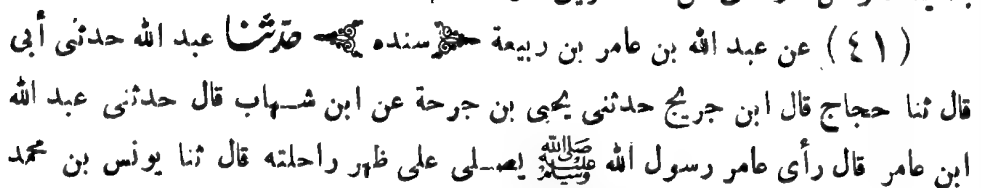 (٤١) عن عبد الله بن عامر بن ربيعة ﴿سنده﴾ حدثنا عبد الله حدثنى أبى
قال ثنا حجاج قال ابن جريج حدثنى يحيى بن جرحة عن ابن شهاب قال حدثنى عبد الله
ابن عامر قال رأى عامر رسول الله ﷺ يصلى على ظهر راحلته قال ثنا يونس بن محمد